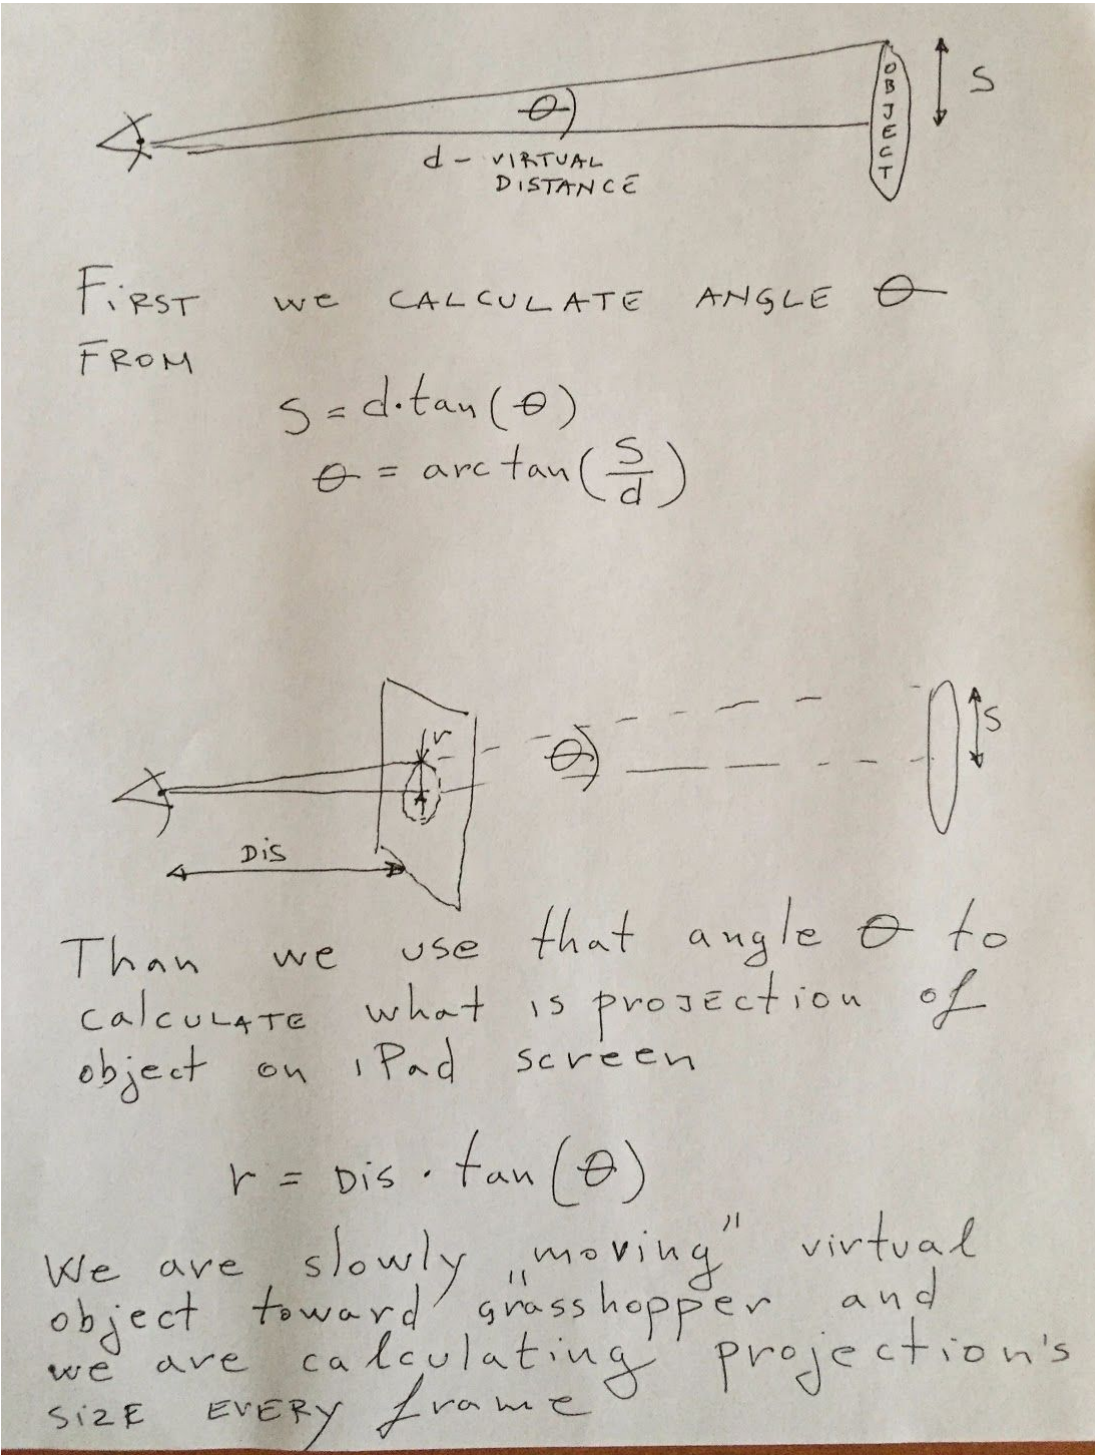 OBJECT
S
θ
d - VIRTUAL
DISTANCE
FiRST we CALCULATE ANGLE θ
FROM
S = d·tan(θ)
θ = arc tan(S/d)
r
θ
S
DiS
Than we use that angle θ to
calcULATE what is proJEction of
object on iPad screen
r = DiS · tan(θ)
We are slowly „moving" virtual
object toward grasshopper and
we are calculating projection's
SIZE EVERY frame